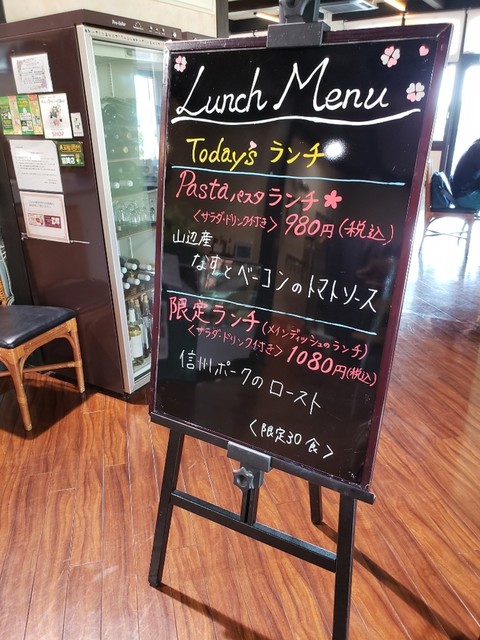 Lunch Menu
Today's ランチ
Pasta パスタ ランチ
<サラダ・ドリンク付き> 980円(税込)
山辺産
なすとベーコンのトマトソース
限定ランチ(メインディッシュのランチ)
<サラダ・ドリンク付き> 1080円(税込)
信州ポークのロースト
<限定30食>